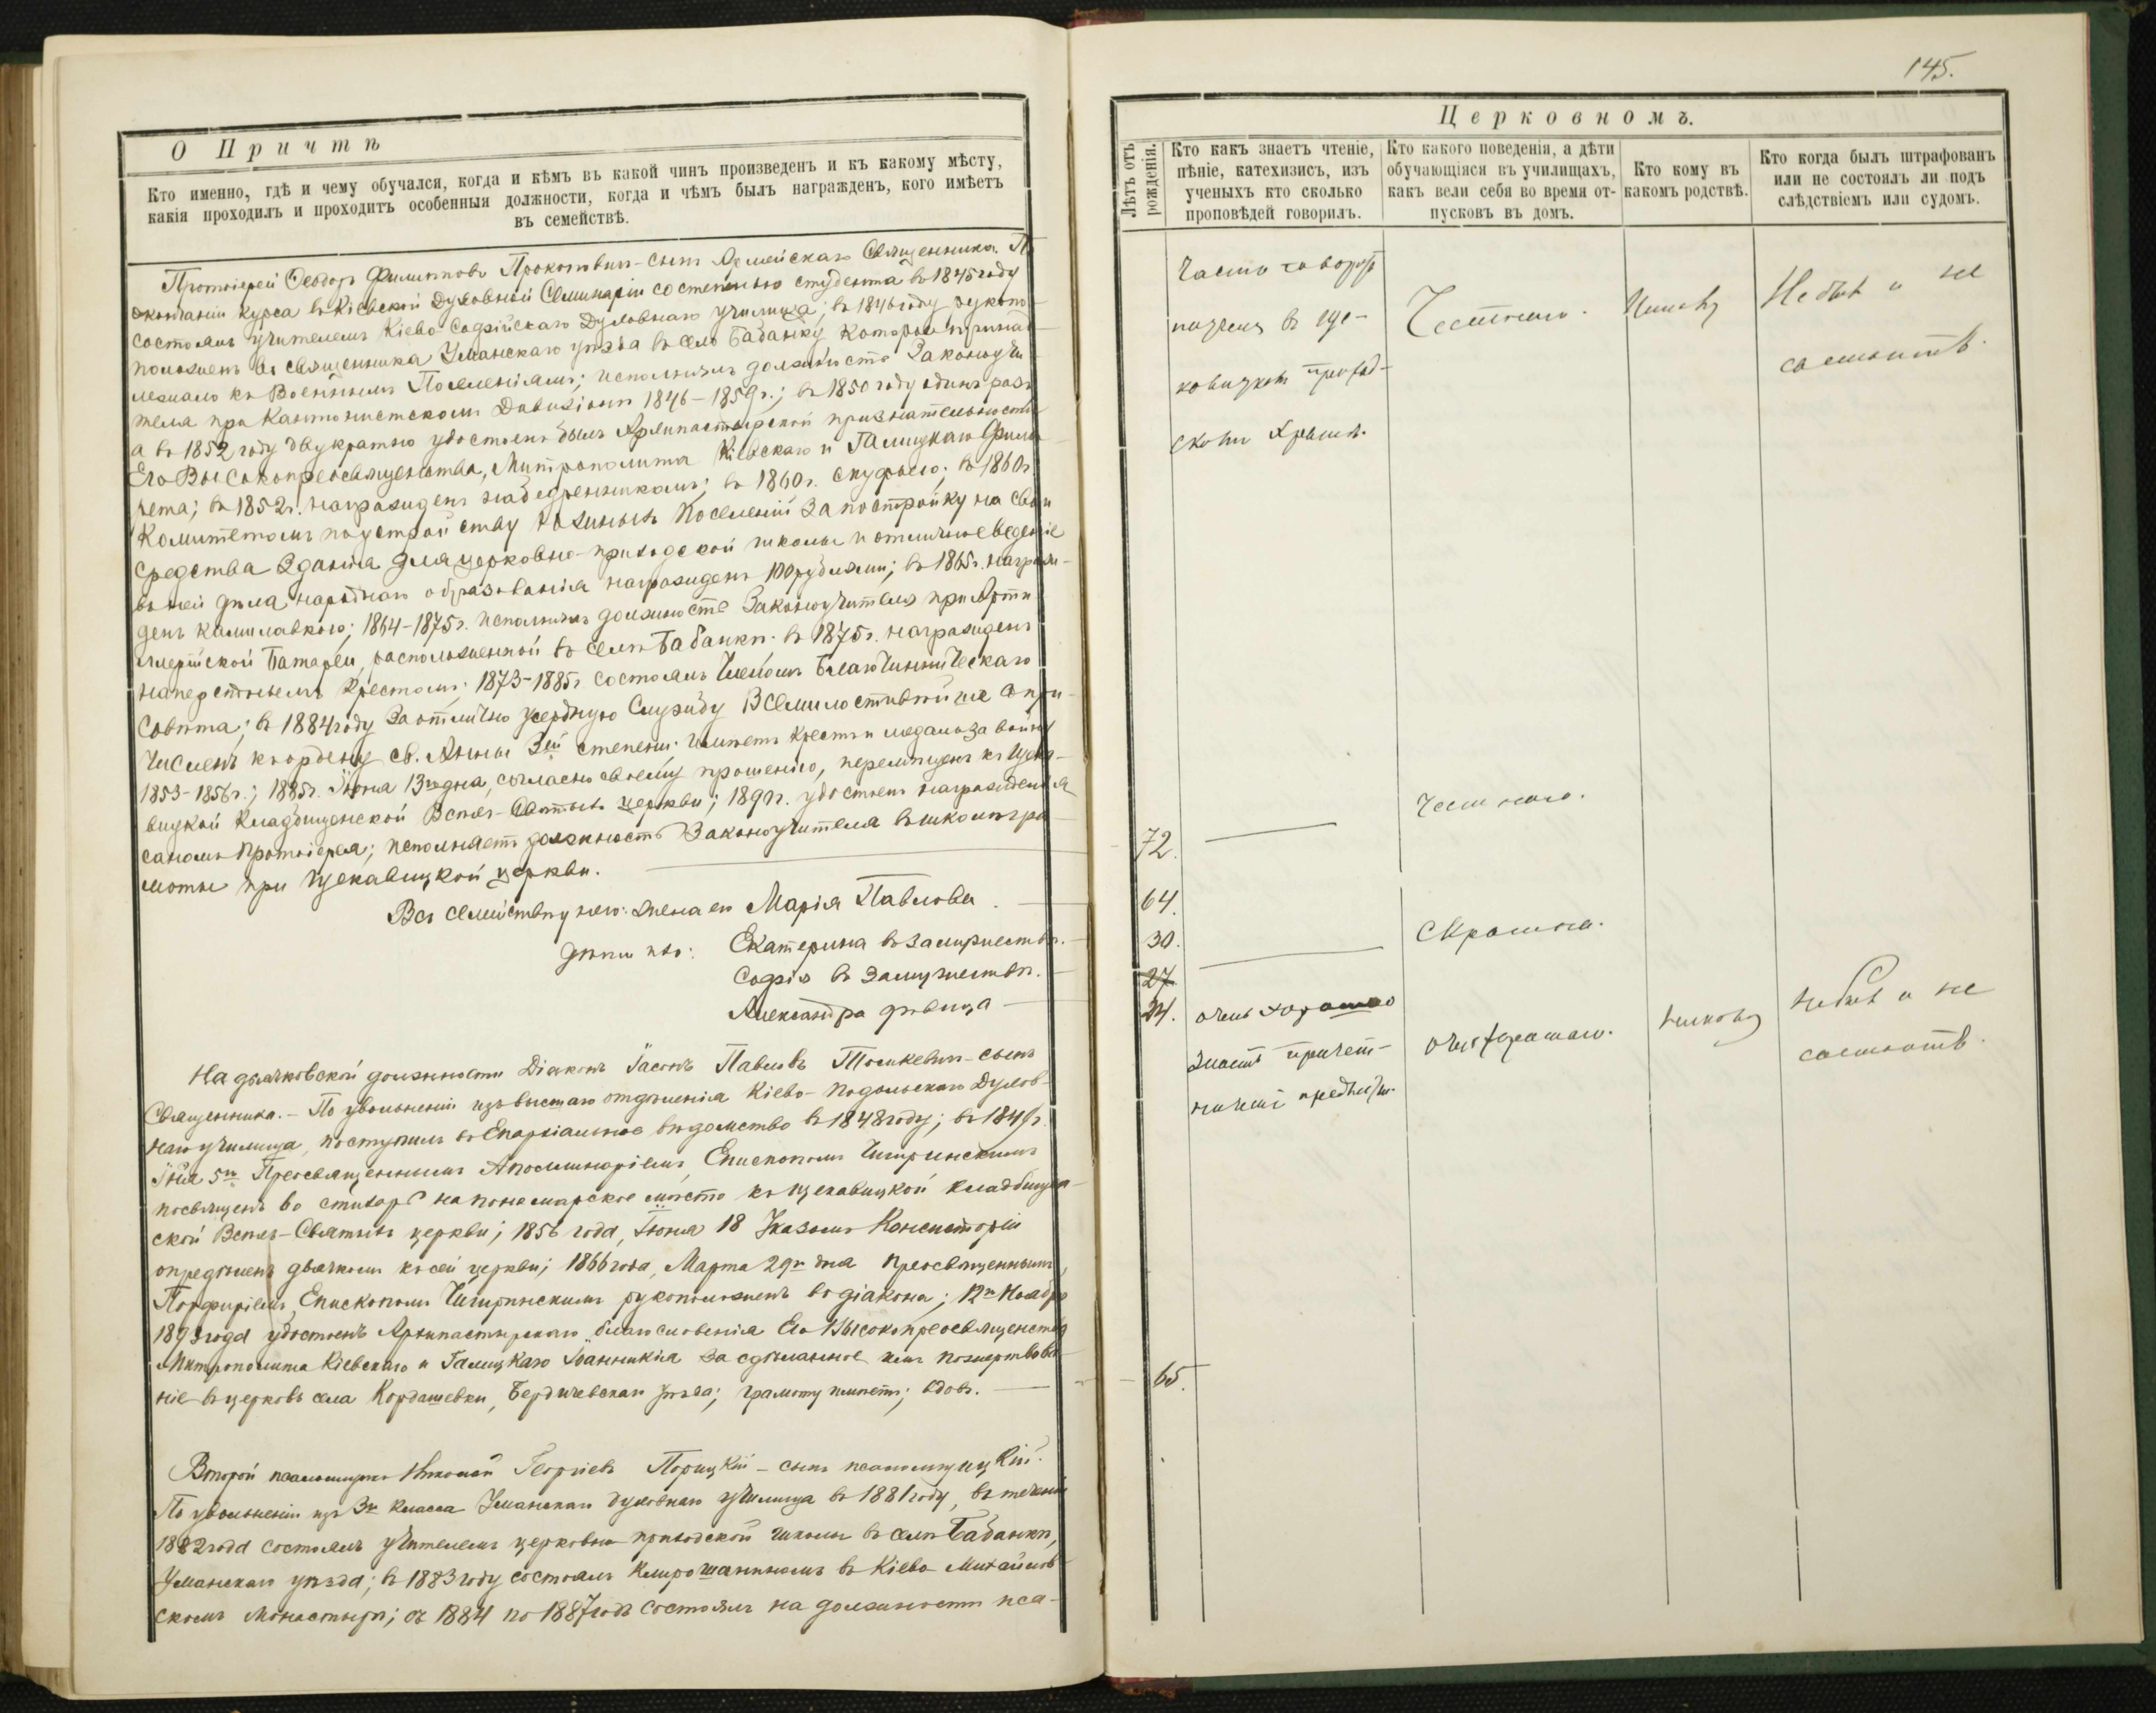 О Причтѣ
Кто именно, гдѣ и чему обучался, когда и кѣмъ въ какой чинъ произведенъ и къ какому мѣсту,
какія проходилъ и проходитъ особенныя должности, когда и чѣмъ былъ награжденъ, кого имѣетъ
въ семействѣ.
Протоіерей Ѳеодоръ Филипповъ Прокоповичъ – сынъ Армейскаго Священника. По
окончаніи курса въ Кіевской Духовной Семинаріи со степенью студента въ 1845 году
состоялъ учителемъ Кіево-Софійскаго Духовнаго училища; въ 1846 году рукопо-
ложенъ во священника Уманскаго уѣзда въ село Бабанку, которое принад-
лежало къ Военнымъ Поселеніямъ; исполнялъ должность Законоучи-
теля при Кантонистскомъ Дивизіонѣ 1846–1859 г.; въ 1850 году одинъ разъ
а въ 1852 году двукратно удостоенъ былъ Архипастырской признательности
Его Высокопреосвященства, Митрополита Кіевскаго и Галицкаго Фила-
рета; въ 1852 г. награжденъ набедренникомъ; въ 1860 г. скуфьею; въ 1860 г.
Комитетомъ по устройству южныхъ Поселеній за постройку на свои
средства зданія для церковно-приходской школы и отличное веденіе
въ ней дѣла народнаго образованія награжденъ 100 рублями; въ 1865 г. награж-
денъ камилавкою; 1864–1875 г. исполнялъ должность Законоучителя при Арти-
лерійской Батареи, расположенной въ селѣ Бабанкѣ. въ 1875 г. награжденъ
наперстнымъ Крестомъ; 1873–1885 г. состоялъ Членомъ Благочинническаго
Совѣта; въ 1884 году за отлично усердную службу Всемилостивѣйше сопри-
численъ къ ордену св. Анны 3ей степени. Имѣетъ Крестъ и медаль за войну
1853–1856 г.; 1885 г. Іюня 13го дня, согласно своему прошенію, перемѣщенъ къ Щека-
вицкой Кладбищенской Всѣхъ-Святыхъ церкви; 1890 г. удостоенъ награжденія
саномъ Протоіерея; исполняетъ должность Законоучителя въ школѣ гра-
моты при Щекавицкой церкви.
Въ семействѣ у него: жена его Марія Павлова
дѣти ихъ: Екатерина въ замужествѣ.
Софія въ замужествѣ.
Александра дѣвица
На дьячковской должности Діаконъ Іасонъ Павловъ – сынъ
Священника. – По увольненіи изъ высшаго отдѣленія Кіево-Подольскаго Духов-
наго училища, поступилъ въ Епархіальное вѣдомство въ 1848 году; въ 1849 г.
5го Преосвященнымъ Аполлинаріемъ, Епископомъ Чигиринскимъ
посвященъ во стихарь на пономарское мѣсто къ Щекавицкой кладбищен-
ской Всѣхъ-Святыхъ церкви; 1856 года, Іюня 18 Указомъ Консисторіи
опредѣленъ дьячкомъ къ сей церкви; 1866 года, Марта 29го дня Преосвященнымъ
Порфиріемъ, Епископомъ Чигиринскимъ рукоположенъ во діакона; 12го Ноября
1893 года удостоенъ Архипастырскаго благословенія Его Высокопреосвященства
Митрополита Кіевскаго и Галицкаго Іоанникія за сдѣланное имъ пожертвова-
ніе въ церковь села Кордашевки, Бердичевскаго уѣзда; грамоту имѣетъ; вдовъ.
Второй псаломщикъ Николай Георгіевъ Порицкій – сынъ
По увольненіи изъ 3го класса Уманскаго духовнаго училища въ 1881 году, въ теченіи
1882 года состоялъ учителемъ церковно-приходской школы въ селѣ Бабанкѣ,
Уманскаго уѣзда; въ 1883 году состоялъ клирошаниномъ въ Кіево-Михайлов-
скомъ Монастырѣ; съ 1884 по 1887 годъ состоялъ на должности пса-
145.
Церковномъ.
Лѣтъ отъ рожденія.
Кто какъ знаетъ чтеніе,
пѣніе, катехизисъ, изъ
ученыхъ кто сколько
проповѣдей говорилъ.
Кто какого поведенія, а дѣти
обучающіяся въ училищахъ,
какъ вели себя во время от-
пусковъ въ домъ.
Кто кому въ
какомъ родствѣ.
Кто когда былъ штрафованъ
или не состоялъ ли подъ
слѣдствіемъ или судомъ.
Часто говоритъ
въ Ще-
Честнаго.
Никому
Не былъ и не
состоитъ.
72.
Честнаго.
64.
30.
Скромна.
27
24.
очень хорошо
знаетъ причет-
очень хорошаго.
Никому
Не былъ и не
состоитъ.
65.